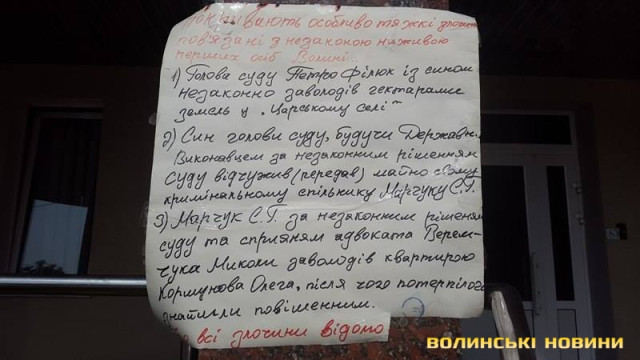 покривають особливо тяжкі злочини
пов'язані з незаконою наживою
перших осіб Волині..
1) Голова суду Петро Філюк із сином
незаконно заволодів гектарами
землі у „Царському селі"
2) Син голови суду, будучи Державн.
Виконавцем за незаконним рішенням
суду відчужив (передав) майно свому
кримінальному спільнику Марчуку С.Г.
3) Марчук С.Г. за незаконним рішенням
суду та сприяням адвоката Верем-
чука Миколи заволодів квартирою
Кормунова Олега, після чого потерпілого
знайшли повішенним.
всі злочини відомо
ВОЛИНСЬКІ НОВИНИ